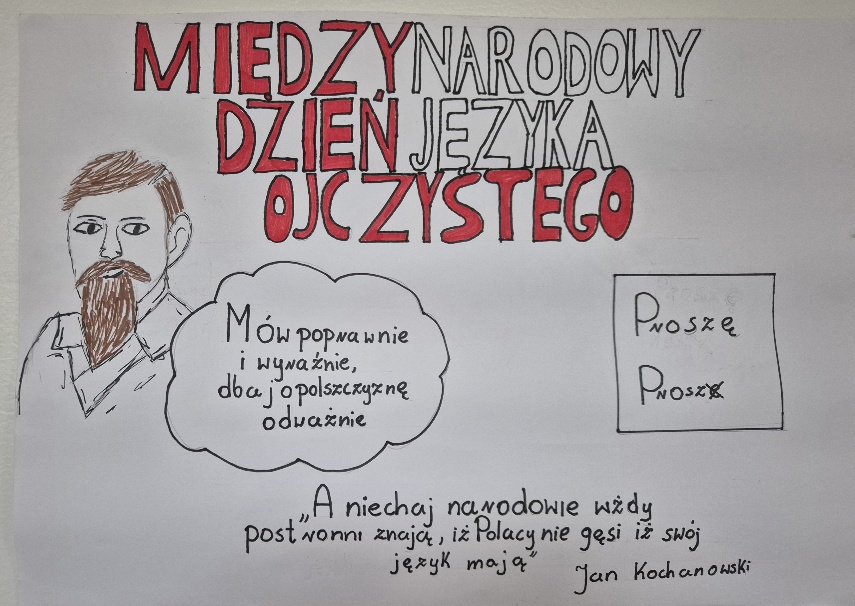 MIĘDZYNARODOWY
DZIEŃ JĘZYKA
OJCZYSTEGO
Mów poprawnie
i wyraźnie,
dbaj o polszczyznę
odważnie
Proszę
Prosze
„A niechaj narodowie wżdy
postronni znają, iż Polacy nie gęsi iż swój
język mają”
Jan Kochanowski